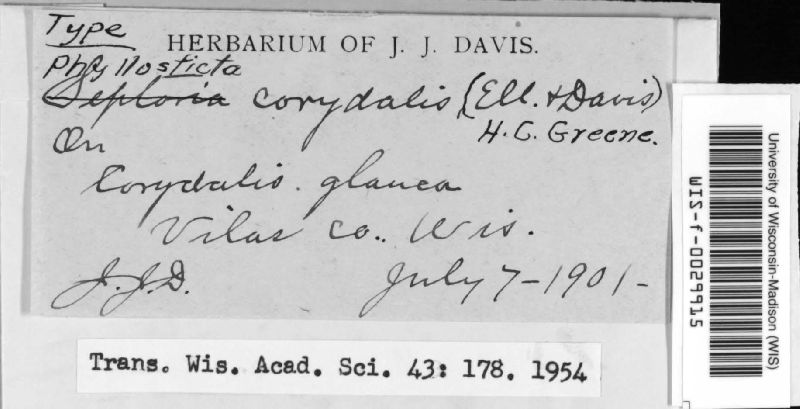 Type
HERBARIUM OF J. J. DAVIS.
Phyllosticta
Septoria corydalis (Ell. & Davis)
H. C. Greene.
On
Corydalis. glauca
Vilas Co.. Wis.
J. J. D. July 7-1901-
Trans. Wis. Acad. Sci. 43: 178. 1954
University of Wisconsin-Madison (WIS)
WIS-f-0029915